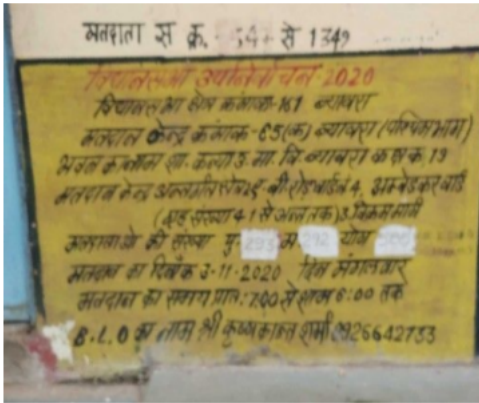 मतदाता स क्र. से 1349
विधानसभा उपनिर्वाचन-2020
विधानसभा क्षेत्र क्रमांक-161 ब्यावरा
मतदान केन्द्र क्रमांक-65(क) ब्यावरा (पश्चिम भाग)
भवन का नाम शा. कन्या उ. मा. वि. ब्यावरा कक्ष क्र. 13
मतदान केन्द्र अन्तर्गत क्षेत्र ए.बी.रोड वार्ड नं 4, अम्बेडकर वार्ड
(गृह संख्या 41 से अन्त तक)
की संख्या पु. 293 म. 292 योग
मतदान का दिनांक 3-11-2020 दिन मंगलवार
मतदान का समय प्रात: 7:00 से शाम 6:00 तक
B.L.O का नाम श्री कृष्णकान्त शर्मा 9926642753